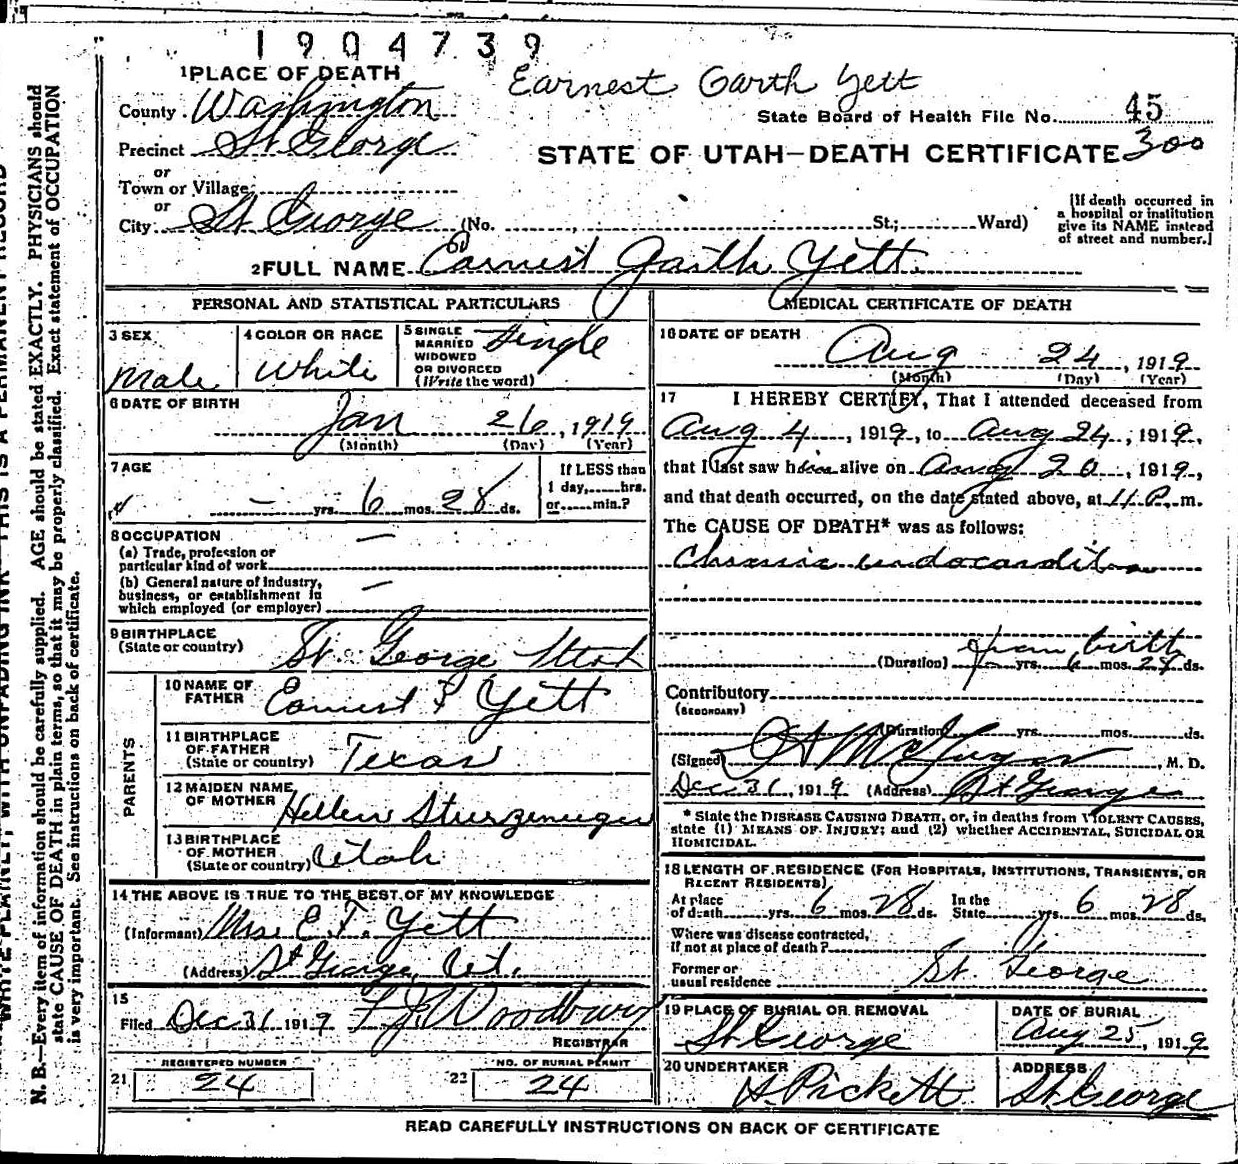 1904739
Earnest Garth Yett
1 PLACE OF DEATH
County Washington
State Board of Health File No. 45
300
Precinct St George
STATE OF UTAH—DEATH CERTIFICATE
or
Town or Village
or
City St George (No. , St.; Ward)
[If death occurred in
a hospital or institution
give its NAME instead
of street and number.]
2 FULL NAME Earnest Garth Yett
PERSONAL AND STATISTICAL PARTICULARS
3 SEX
Male
4 COLOR OR RACE
White
5 SINGLE
MARRIED
WIDOWED
OR DIVORCED
(Write the word)
Single
6 DATE OF BIRTH
Jan 26, 1919
(Month) (Day) (Year)
7 AGE
— yrs. 6 mos. 28 ds.
If LESS than
1 day, hrs.
or min.?
8 OCCUPATION
(a) Trade, profession or
particular kind of work —
(b) General nature of industry,
business, or establishment in
which employed (or employer) —
9 BIRTHPLACE
(State or country) St. George Utah
PARENTS
10 NAME OF
FATHER Earnest F Yett
11 BIRTHPLACE
OF FATHER
(State or country) Texas
12 MAIDEN NAME
OF MOTHER Hellen
13 BIRTHPLACE
OF MOTHER
(State or country) Utah
14 THE ABOVE IS TRUE TO THE BEST OF MY KNOWLEDGE
(Informant) Mrs. E. F. Yett
(Address) St George, Ut.
15
Filed Dec 31 1919 F J Woodbury
REGISTRAR
REGISTERED NUMBER
21 24
NO. OF BURIAL PERMIT
22 24
MEDICAL CERTIFICATE OF DEATH
16 DATE OF DEATH
Aug 24, 1919
(Month) (Day) (Year)
17 I HEREBY CERTIFY, That I attended deceased from
Aug 4, 1919, to Aug 24, 1919,
that I last saw him alive on Aug 20, 1919,
and that death occurred, on the date stated above, at 11 P. m.
The CAUSE OF DEATH* was as follows:
Chronic endocarditis
from birth
(Duration) yrs. 6 mos. 28 ds.
Contributory
(SECONDARY)
(Duration) yrs. mos. ds.
(Signed) , M. D.
Dec 31, 1919 (Address) St George
* State the DISEASE CAUSING DEATH, or, in deaths from VIOLENT CAUSES,
state (1) MEANS OF INJURY; and (2) whether ACCIDENTAL, SUICIDAL OR
HOMICIDAL.
18 LENGTH OF RESIDENCE (FOR HOSPITALS, INSTITUTIONS, TRANSIENTS, OR
RECENT RESIDENTS)
At place
of death yrs. 6 mos. 28 ds.
In the
State yrs. 6 mos. 28 ds.
Where was disease contracted,
if not at place of death?
Former or
usual residence St. George
19 PLACE OF BURIAL OR REMOVAL
St George
DATE OF BURIAL
Aug 25, 1919
20 UNDERTAKER
A. Pickett
ADDRESS
St. George
READ CAREFULLY INSTRUCTIONS ON BACK OF CERTIFICATE
WRITE PLAINLY, WITH UNFADING INK—THIS IS A PERMANENT RECORD
N. B.—Every item of information should be carefully supplied. AGE should be stated EXACTLY. PHYSICIANS should
state CAUSE OF DEATH in plain terms, so that it may be properly classified. Exact statement of OCCUPATION
is very important. See instructions on back of certificate.